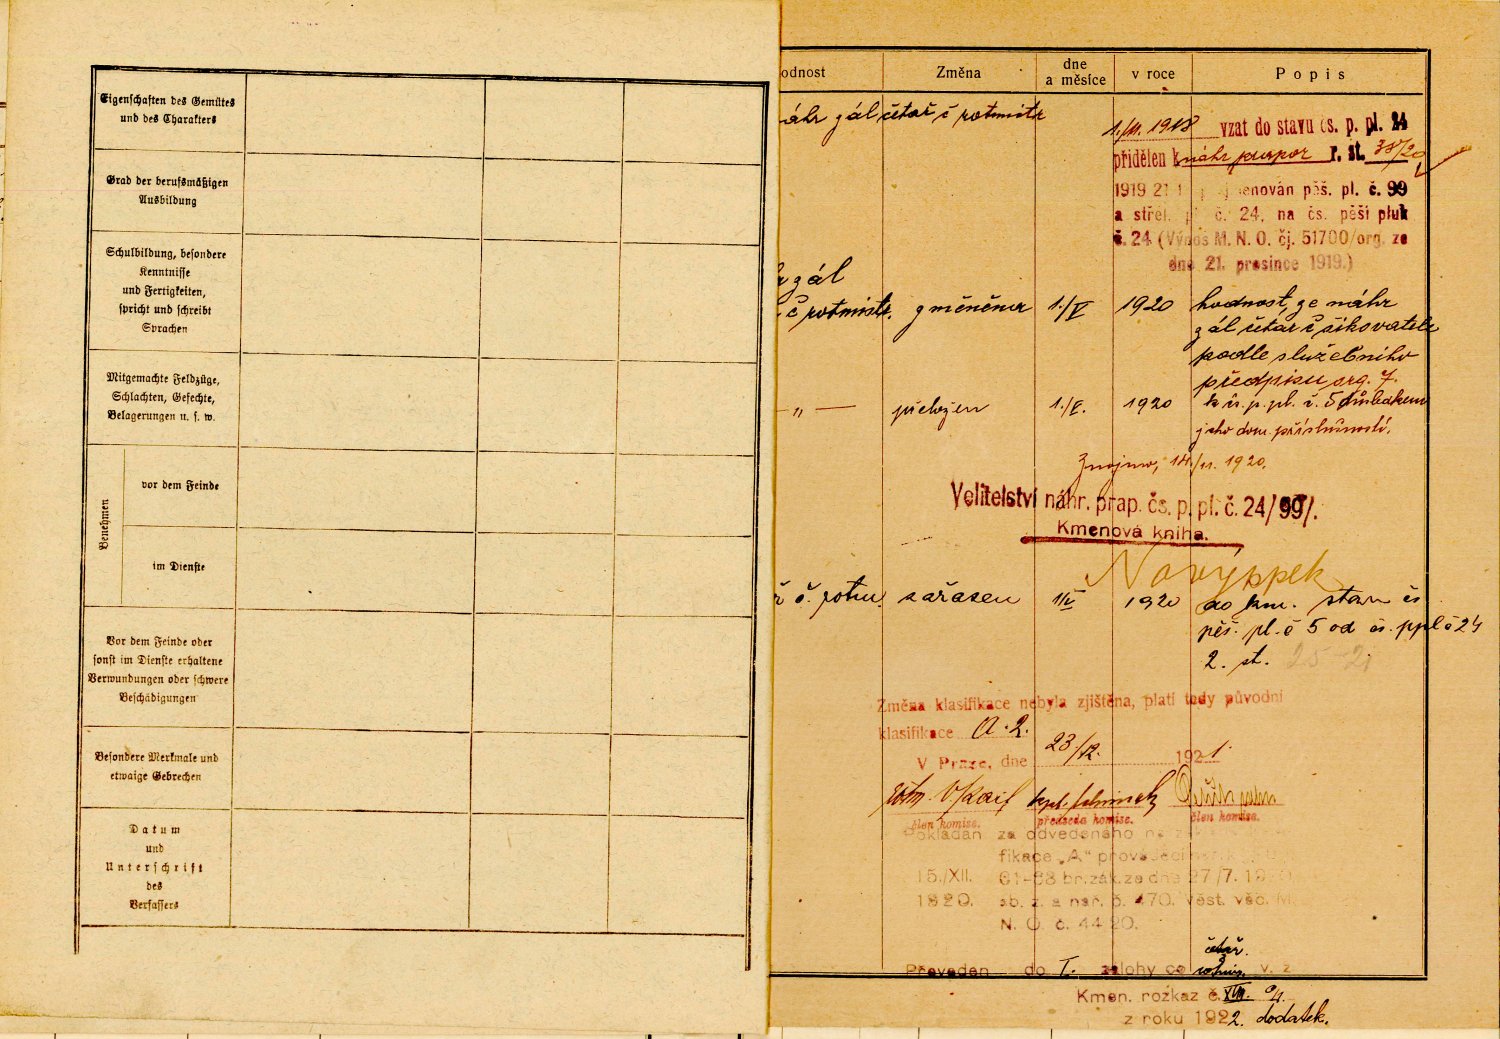 Eigenschaften des Gemütes
und des Charakters
Grad der berufsmäßigen
Ausbildung
Schulbildung, besondere
Kenntnisse
und Fertigkeiten,
spricht und schreibt
Sprachen
Mitgemachte Feldzüge,
Schlachten, Gefechte,
Belagerungen u. s. w.
Benehmen
vor dem Feinde
im Dienste
Vor dem Feinde oder
sonst im Dienste erhaltene
Verwundungen oder schwere
Beschädigungen
Besondere Merkmale und
etwaige Gebrechen
Datum
und
Unterschrift
des
Verfassers
odnost
Změna
dne
a měsíce
v roce
Popis
áhr gál četař č rotmistr
1./11. 1918 vzat do stavu čs. p. pl. 24
přidělen k náhr prapor r. št. 38/20
1919 21 jmenován pěš. pl. č. 99
a střel. pl. č. 24, na čs. pěší pluk
č. 24 (Výnos M. N. O. čj. 51700/org. ze
dne 21. prosince 1919.)
gál
č rotmistr. změněna 1./V 1920 hodnost, ze náhr
gál četař č šikovatele
podle služebního
předpisu org. 7.
— „ — přeložen 1./V. 1920 k čs. p. pl. č. 5 důsledkem
jeho dom. příslušnosti.
Znojmo, 14./11. 1920.
Velitelství náhr. prap. čs. p. pl. č. 24/99/.
Kmenová kniha.
č. rotm. zařazen 1/V 1920 do km. stavu čs
pěš. pl. č 5 od čs. p pl č 24
2. st. 25-21
Změna klasifikace nebyla zjištěna, platí tedy původní
klasifikace A. 2.
V Praze, dne 23/12. 1921.
člen komise. předseda komise. člen komise.
Pokládán za odvedeného na
fikace „A" prováděcí nař. k
15./XII. 61-68 br. zák. ze dne 27/7. 1920
1920. sb. z. a nař. č. 470. Věst. věc. M.
N. O. č. 44 20.
četař.
Převeden do I. zálohy co rotmis. v. z
Kmen. rozkaz č. XVII. 9/4.
z roku 1922. dodatek.